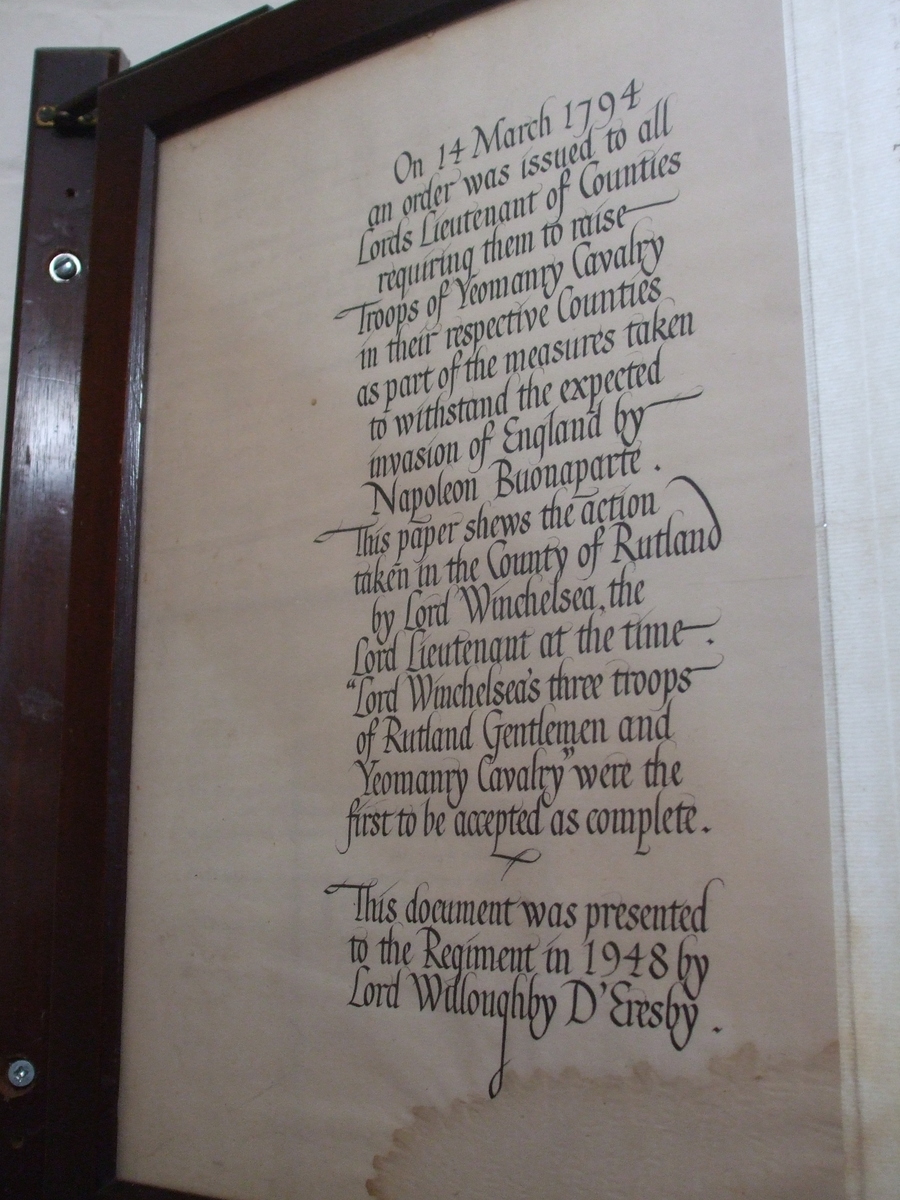 On 14 March 1794
an order was issued to all
Lords Lieutenant of Counties
requiring them to raise
Troops of Yeomanry Cavalry
in their respective Counties
as part of the measures taken
to withstand the expected
invasion of England by
Napoleon Buonaparte.
This paper shews the action
taken in the County of Rutland
by Lord Winchelsea, the
Lord Lieutenant at the time.
"Lord Winchelsea's three troops
of Rutland Gentlemen and
Yeomanry Cavalry" were the
first to be accepted as complete.
This document was presented
to the Regiment in 1948 by
Lord Willoughby D'Eresby.